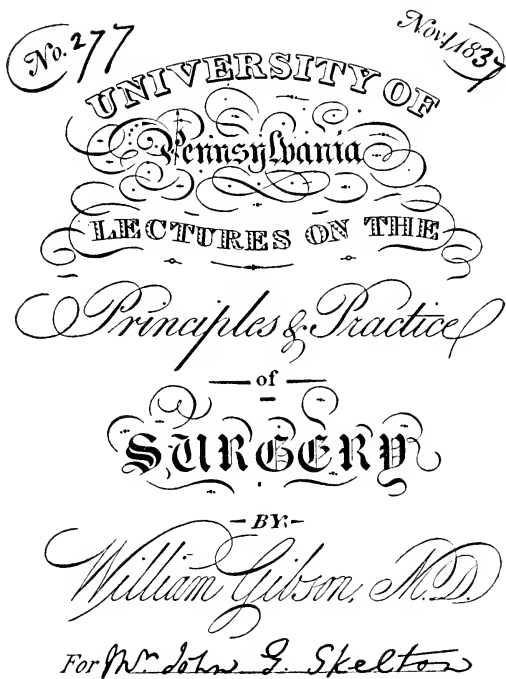 No. 277
Nov. 1837
UNIVERSITY OF
Pennsylvania
LECTURES ON THE
Principles & Practice
of
SURGERY
BY
William Gibson, M.D.
For Mr John G. Skelton